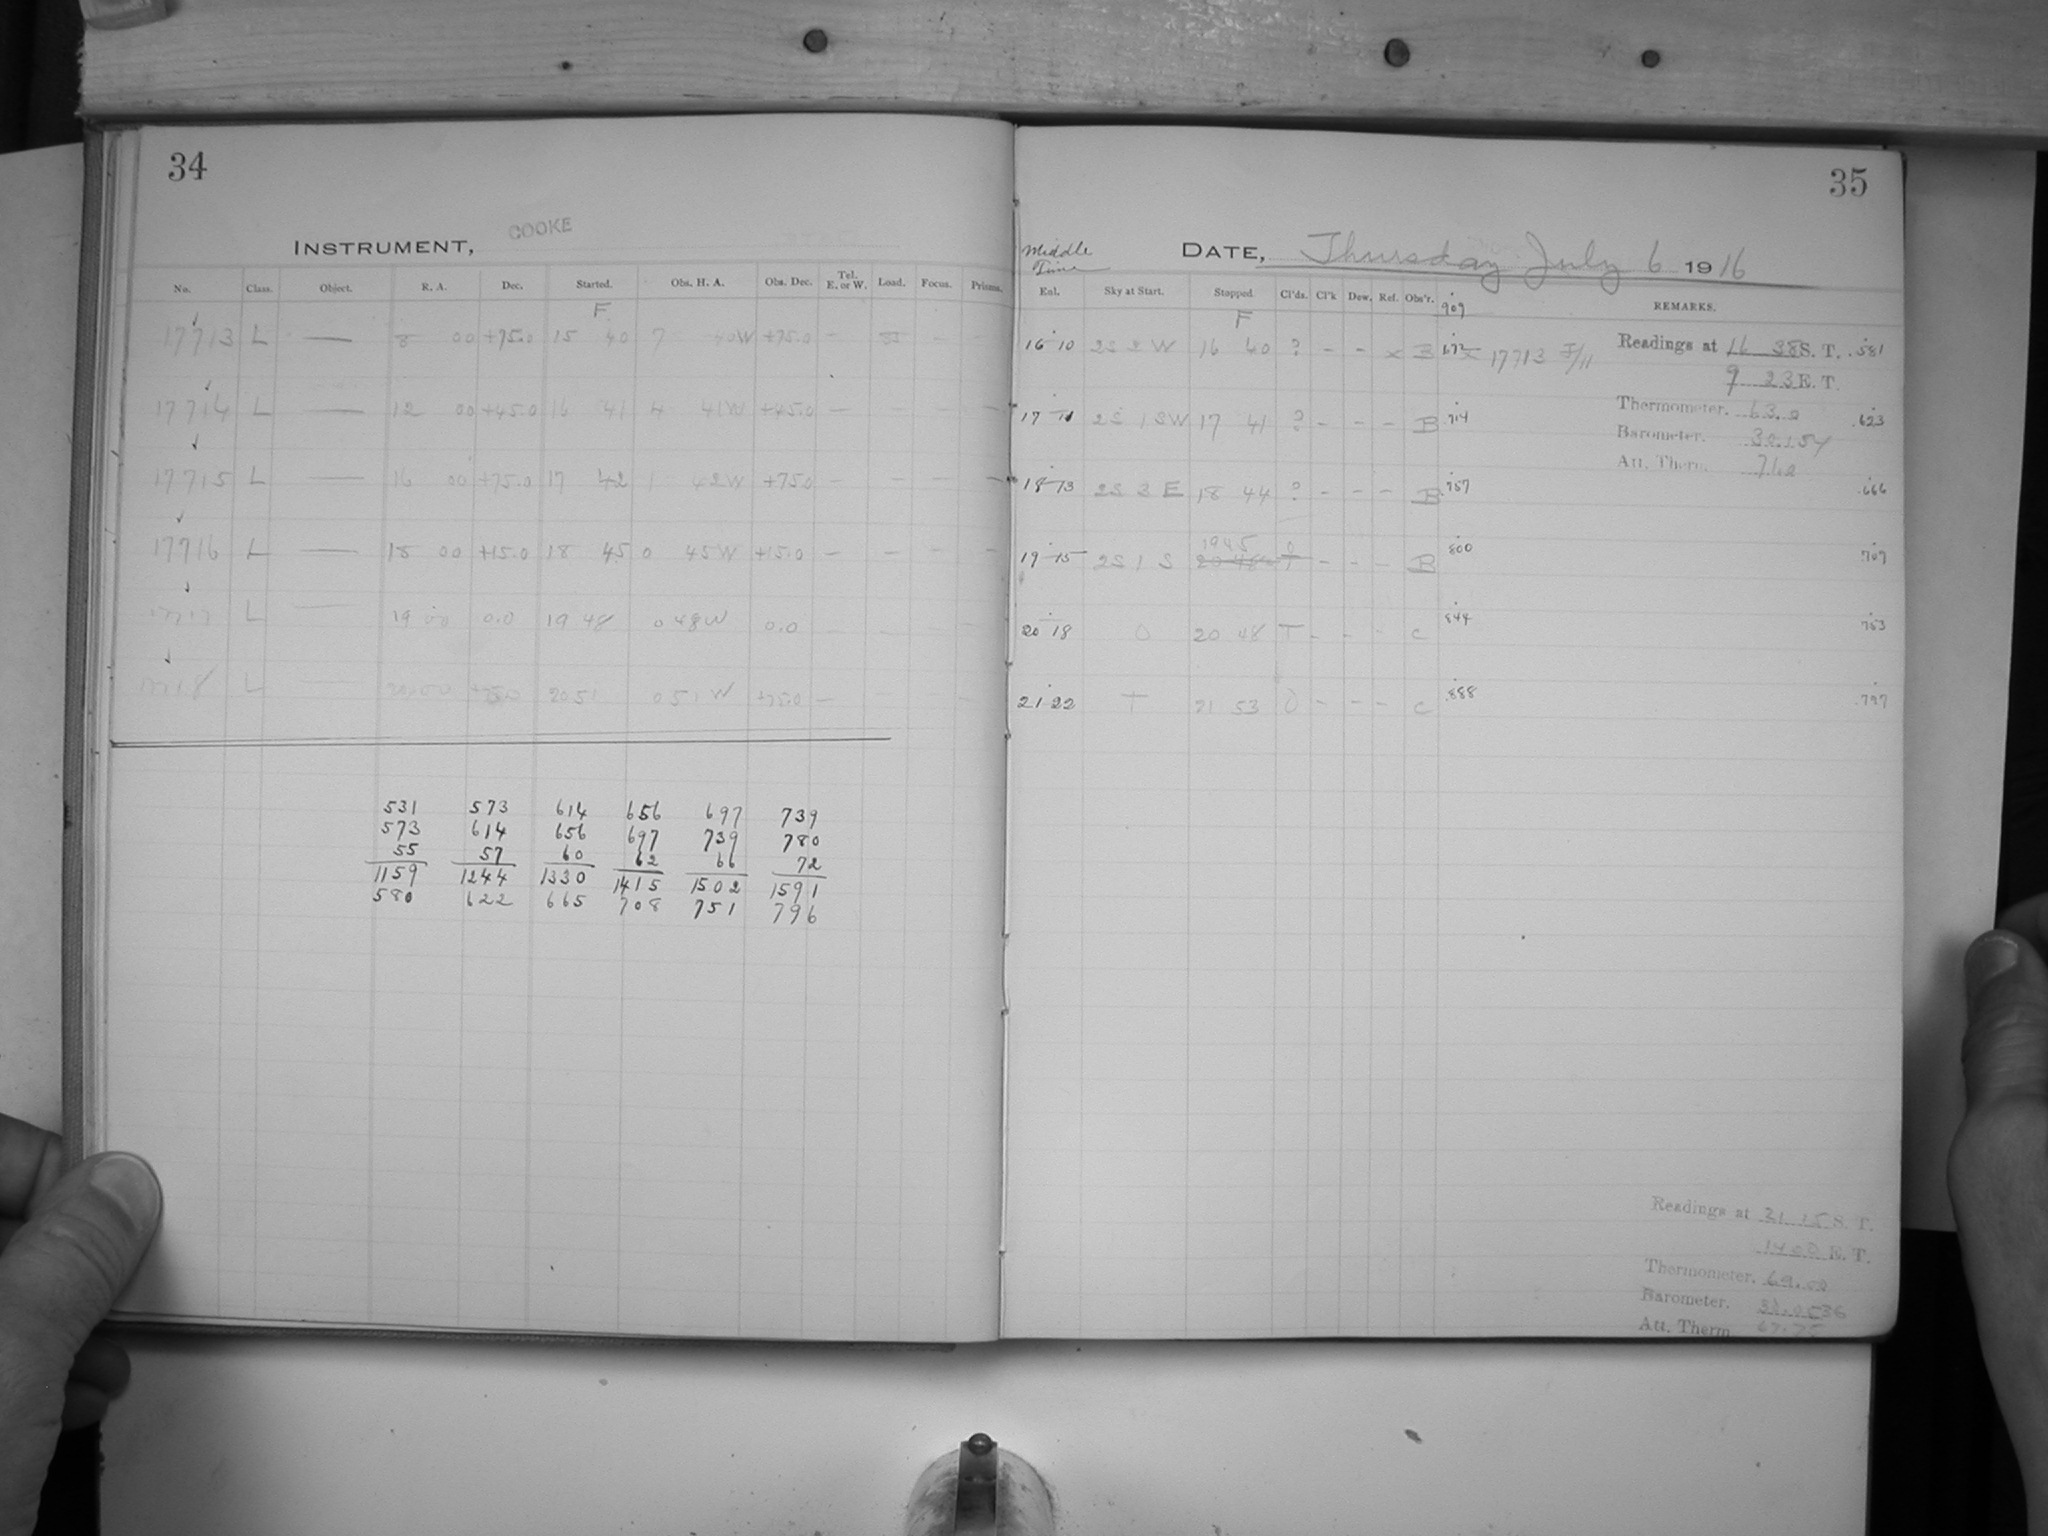 34
INSTRUMENT, COOKE
No. Class. Object. R. A. Dec. Started. Obs. H. A. Obs. Dec. Tel. E. or W. Load. Focus. Prisms.
F
17713 L — 8 00 +75.0 15 40 7 40W +75.0 — — —
17714 L — 12 00 +45.0 16 41 4 41W +45.0 — — — —
17715 L — 16 00 +75.0 17 42 1 42W +75.0 — — — —
17716 L — 18 00 +15.0 18 45 0 45W +15.0 — — — —
L — 19 00 0.0 19 48 0 48W 0.0 — — — —
17718 L — 20 00 20 51 0 51 W +75.0 — — —
531 573 614 656 697 739
573 614 656 697 739 780
55 57 60 62 66 72
1159 1244 1330 1415 1502 1591
580 622 665 708 751 796
35
Middle Time
DATE, Thursday July 6 1916
Eul. Sky at Start. Stopped Cl'ds. Cl'k Dew. Ref. Obs'r. .909 REMARKS.
F
16 10 2S 2 W 16 40 ? — — x B .672 x 17713 F/11
17 11 2S 1 SW 17 41 ? — — — B .714
18 13 2S 3 E 18 44 ? — — — B .757
1945 0
19 15 2S 1 S 20 48 T — — — B .800
20 18 0 20 48 T — — — C .844
21 22 T 21 53 0 — — — C .888
Readings at 16 38 S. T. .581
9 23 E. T.
Thermometer. 63.0 .623
Barometer. 30.154
Att. Therm. 76.0
.666
.707
.753
.797
Readings at 21 15 S. T.
14 00 E. T.
Thermometer.
Barometer.
Att. Therm. 67.75